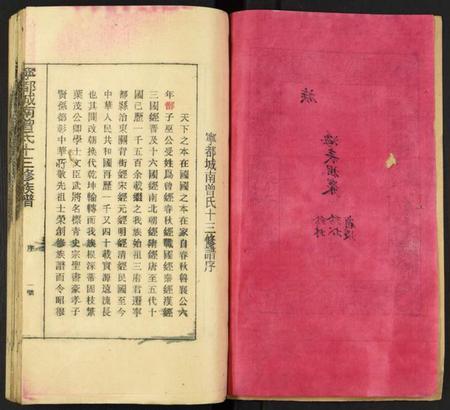 寧都城南曾氏十三修譜序
天下之本在國國之本在家自春秋魯襄公六
年鄫子巫公受姓爲曾經春秋經戰國經秦經漢經
三國經晉及十六國經南北朝經隋經唐至五代十
國已歷一千五百余載繼之我族始祖三府君遷寧
都縣治東關背街經宋經元經明經清經民國至今
中華人民共和國再歷一千又四十載實源遠流長
也其間改朝換代乾坤輪轉而我族根深蒂固枝繁
葉茂公卿學士文臣武將名標青史宗聖書豪孝子
賢孫德彰中華所敬先祖士榮創修族譜而令昭穆
寧都城南曾氏十三修族譜
序
一號